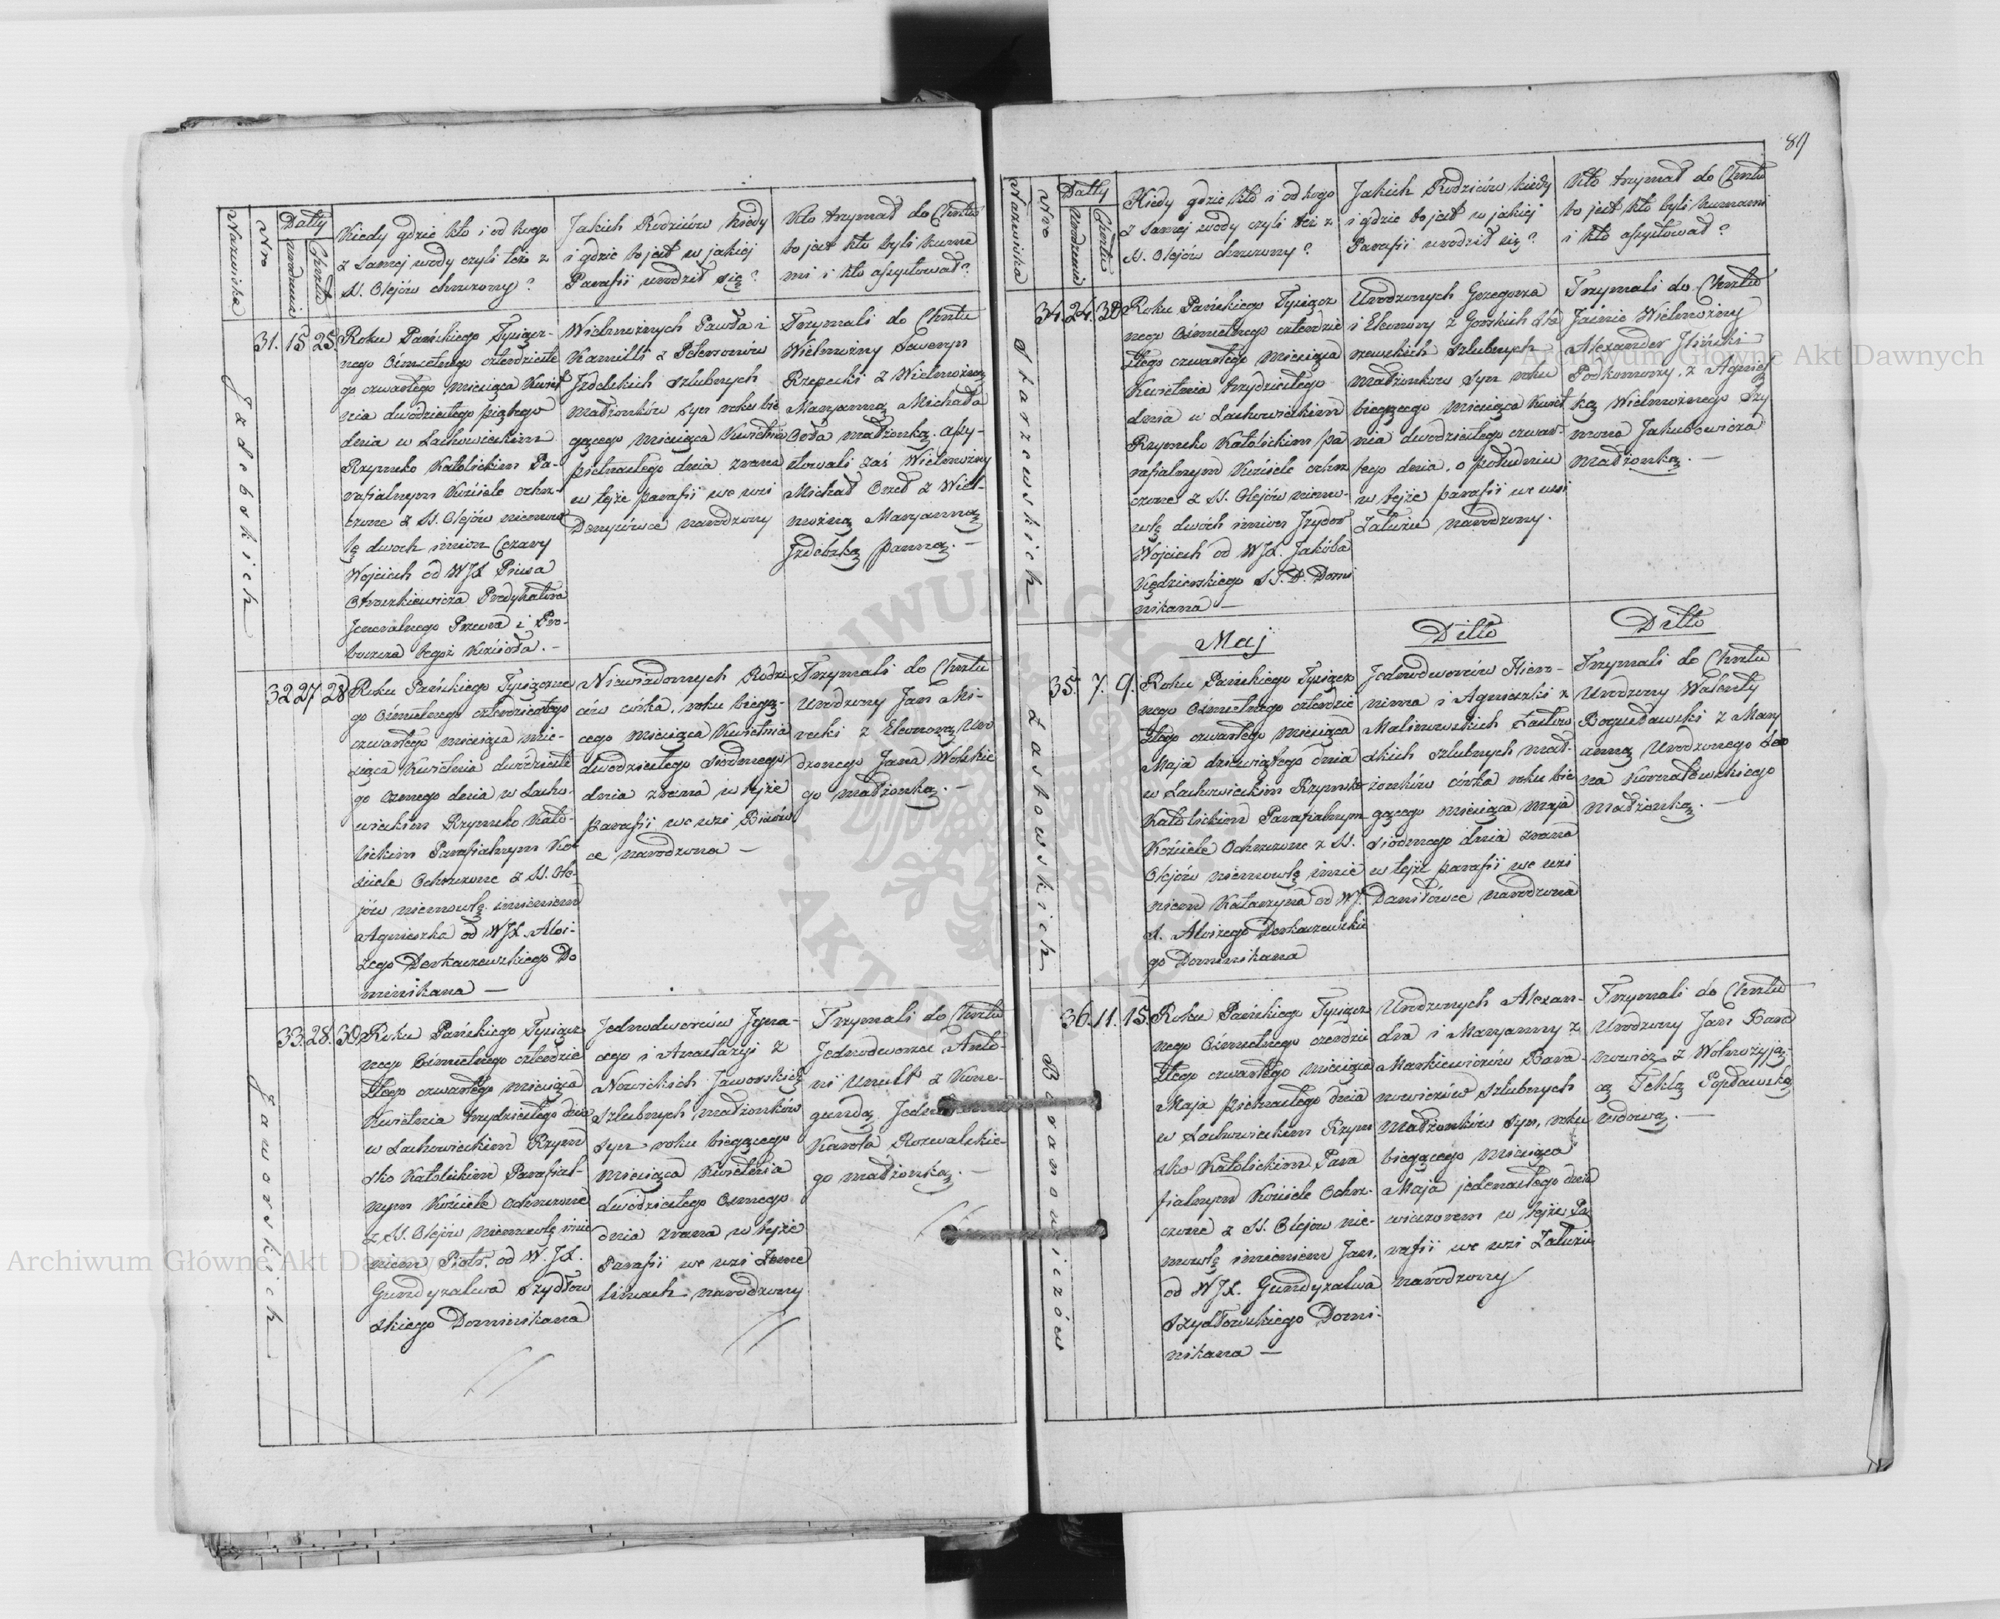 89
Nazwiska
Nro
Datty
urodzenia
Chrztu
Kiedy gdzie kto i od kogo
z samej wody czyli też z
SS. Olejów chrzczony?
Jakich Rodziców kiedy
i gdzie to jest w jakiej
Parafii urodził się?
Kto trzymał do Chrztu
to jest kto byli kuma
mi i kto assystował?
Izdebskich
31. 15 25
Roku Pańskiego Tysiącz-
nego Ośmsetnego czterdzieste
go czwartego miesiąca Kwiet
nia dwódziestego piątego
dnia w Lachowieckim
Rzymsko Katolickim Pa-
rafialnym Kościele ochrz-
czone z SS. Olejów niemow
lę dwoch imion Cezary
Wojciech od WJX Piusa
Predykatora
Jeneralnego Przeora i Pro-
boszcza tegoż Kościoła. -
Wielmożnych Pawła i
Kamilli z Petersonów
Izdebskich szlubnych
małżonków syn roku bie
gącego miesiąca Kwietnia
pietnastego dnia zrana
w tejże parafii we wsi
Denysówce narodzony
Trzymali do Chrztu
Wielmożny Seweryn
Rzepecki z Wielmożną
Maryanną Michała
Orda małżonką. assy-
stowali zaś Wielmożny
Michał Ored z Wiel-
możną Maryanną
Izdebską panną. -
32 27 28
Roku Pańskiego Tysiączne
go Ośmsetnego czterdziestego
czwartego miesiąca mie-
siąca Kwietnia dwódzieste
go osmego dnia w Lacho-
wieckim Rzymsko Kato-
lickim Parafialnym Ko-
ściele Ochrzczone z SS. Ole-
jów niemowlę imieniem
Agnieszka od WJX. Aloi-
zego Derkaczewskiego Do
minikana —
Niewiadomych Rodzi
ców córka, roku biegą-
cego miesiąca Kwietnia
dwodziestego siodmego
dnia zrana w tejże
parafii we wsi
ce narodzona —
Trzymali do Chrztu
Urodzony Jan
z Eleonorą Uro
dzonego Jana Wolskie
go małżonką. —
Jaworskich
33. 28. 30
Roku Pańskiego Tysiącz
nego Ośmsetnego czterdzie
stego czwartego miesiąca
Kwietnia trzydziestego dnia
w Lachowieckim Rzym
sko Katolickim Parafial-
nym Kościele ochrzczone
z SS. Olejów niemowlę imie
niem Piotr, od W.JX.
Gundyzalwa Szydłow
skiego Dominikana
Jednodworców Igna-
cego i Anastazyi z
Nowickich Jaworskich
szlubnych małżonków
syn roku biegącego
miesiąca Kwietnia
dwódziestego Osmego
dnia zrana w tejże
Parafii we wsi
narodzony
Trzymali do Chrztu
Jednodworzec Anto-
ni z Kune-
gundą
Karola
go małżonką. —
Nazwiska
Nro
Datty
urodzenia
Chrztu
Kiedy gdzie kto i od kogo
z samej wody czyli też z
SS. Olejów chrzczony?
Jakich Rodziców kiedy
i gdzie to jest w jakiej
Parafii urodził się?
Kto trzymał do Chrztu
to jest kto byli kumami
i kto assystował?
Skarzewskich
34. 24. 30
Roku Pańskiego Tysiącz
nego Ośmsetnego czterdzie
stego czwartego miesiąca
Kwietnia trzydziestego
dnia w Lachowieckim
Rzymsko Katolickim pa
rafialnym Kościele ochrz
czone z SS. Olejów niemo-
wlę dwóch imion Izydor
Wojciech od WJX. Jakóba
Kędzierskiego S.T.D. Domi
nikana —
Urodzonych Grzegorza
i Eleonory z Gorskich Ska
rzewskich szlubnych
małżonków syn roku
biegącego miesiąca Kwiet
nia dwodziestego czwar-
tego dnia, o południu
w tejże parafii we wsi
Zatuziu narodzony.
Trzymali do Chrztu
Jaśnie Wielmożny
Alexander Iliński
Podkomorzy, z Agniesz
ką Wielmożnego Szy
mona Jakubowicza
Małżonką. —
Maj
Ditto
Ditto
Łastowskich
35. 7. 9.
Roku Pańskiego Tysiącz
nego Ośmsetnego czterdzie
stego czwartego miesiąca
Maja dziewiątego dnia
w Lachowieckim Rzymsko
Katolickim Parafialnym
Kościele Ochrzczone z SS.
Olejów niemowlę imie
niem Katarzyna od WJ.
X. Aloizego Derkaczewskie
go Dominikana
Jednodworców Hiero-
nima i Agnieszki z
Malinowskich Łastow
skich szlubnych mał-
żonków córka roku bie
gącego miesiąca maja
siódmego dnia zrana
w tejże parafii we wsi
Daniłówce narodzona
Trzymali do Chrztu
Urodzony Walenty
Bogusławski z Mary
anną Urodzonego Leo
na
Małżonką. —
Baranowiczów
36. 11. 15.
Roku Pańskiego Tysiącz
nego Ośmsetnego czerdzie
stego czwartego miesiąca
Maja pietnastego dnia
w Lachowieckim Rzym
sko Katolickim Para
fialnym Kościele Ochrz-
czone z SS. Olejów nie-
mowlę imieniem Jan,
od WJX. Gundyzalwa
Szydłowskiego Domi-
nikana —
Urodzonych Alexan-
dra i Maryanny z
Markiewiczów Bara-
nowiczów szlubnych
Małżonków syn, roku
biegącego miesiąca
Maja jedenastego dnia
wieczorem w tejże Pa
rafii we wsi Zatuziu
narodzony
Trzymali do Chrztu
Urodzony Jan Bara
nowicz z
Teklą Popławską
wdową. —
Archiwum Główne Akt Dawnych
Archiwum Główne Akt Dawnych